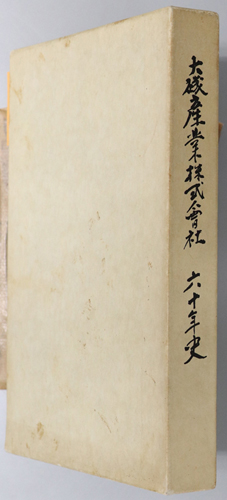 大磯産業株式會社 六十年史